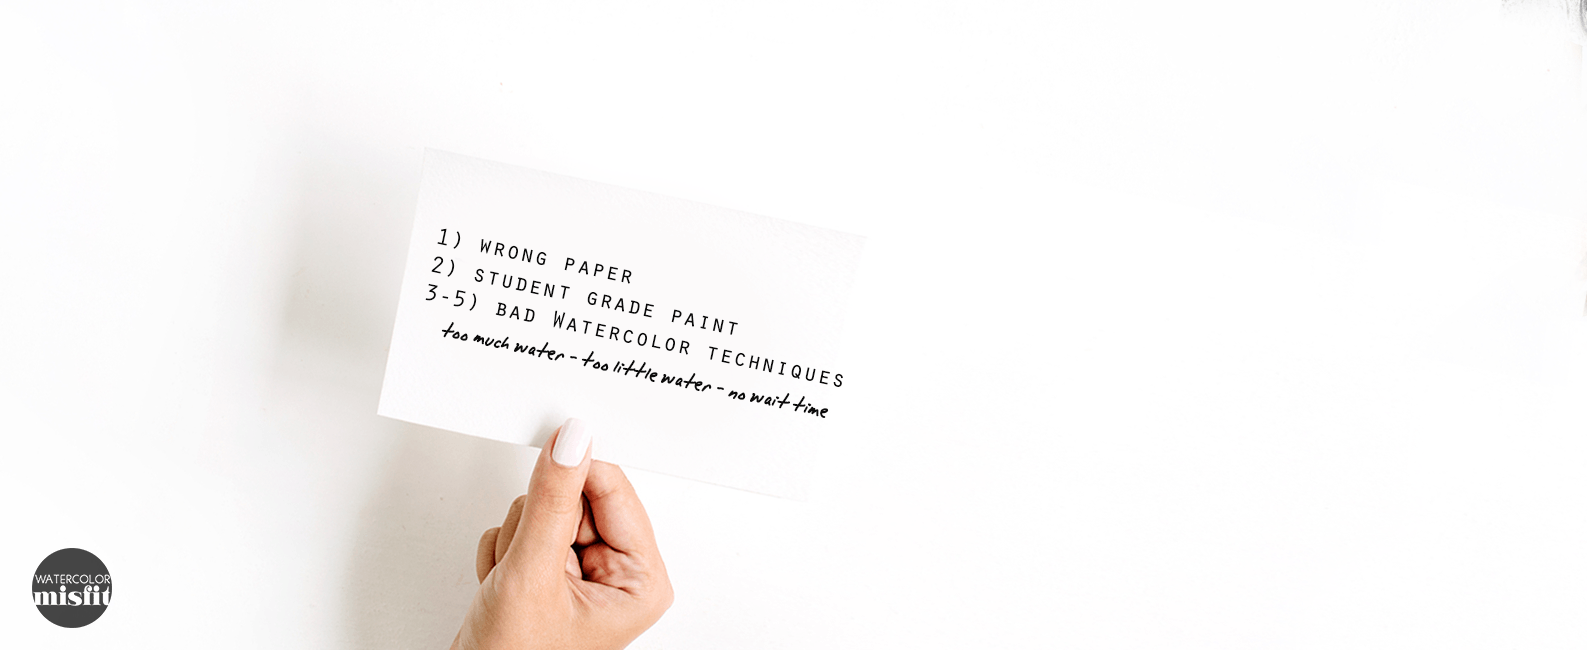 1) WRONG PAPER
2) STUDENT GRADE PAINT
3-5) BAD WATERCOLOR TECHNIQUES
too much water - too little water - no wait time
WATERCOLOR
misfit